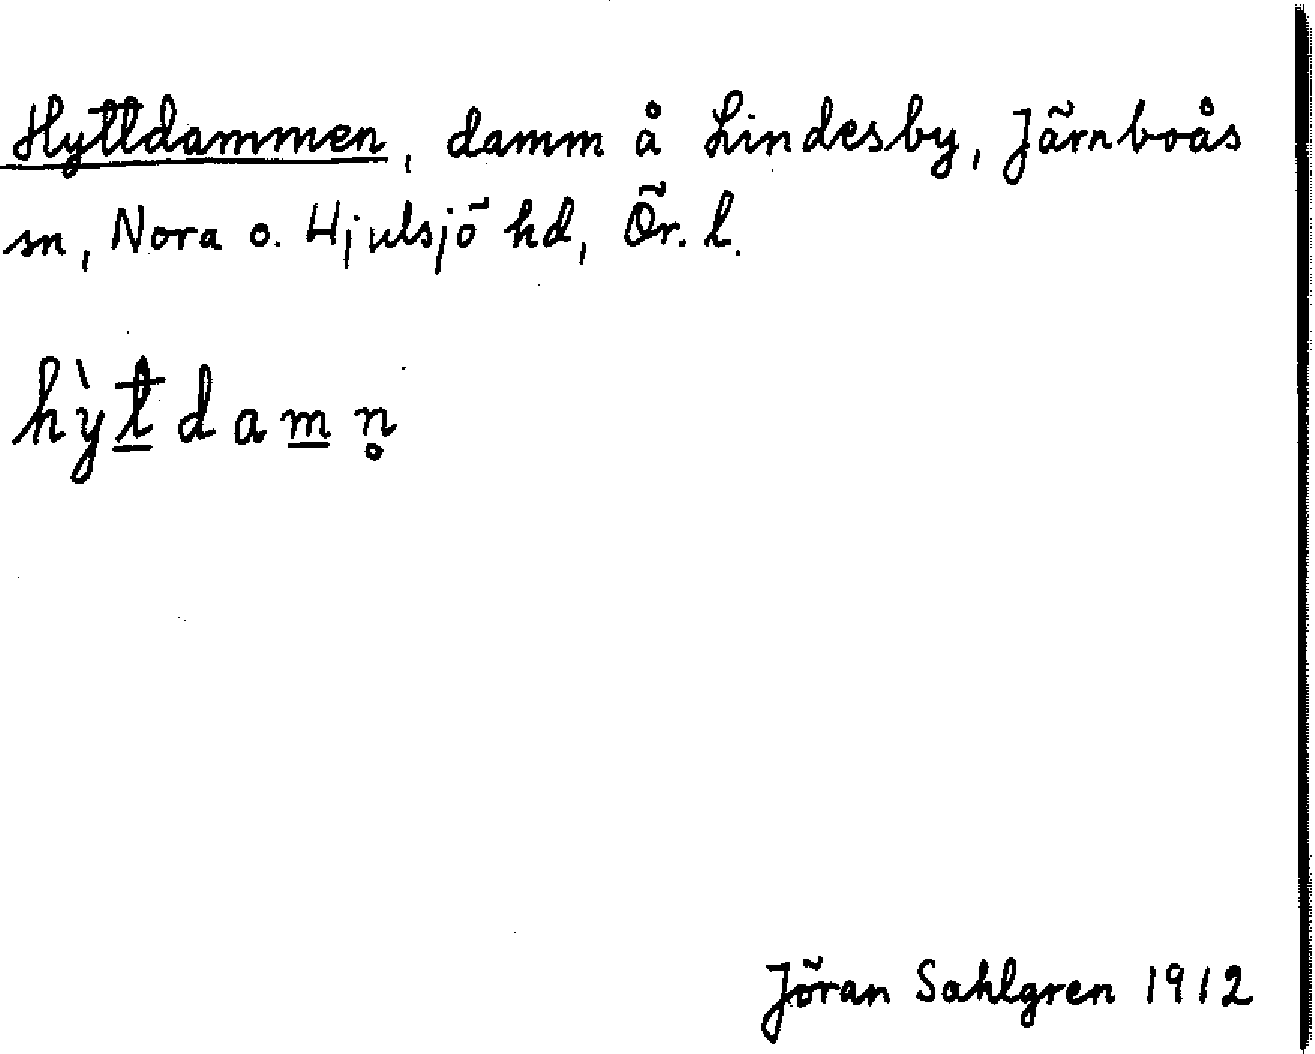 Hyttdammen, damm å Lindesby, Järnboås
sn, Nora o. Hjulsjö hd, Ör. l.
hỳt̲dam̲n̥
Jöran Sahlgren 1912